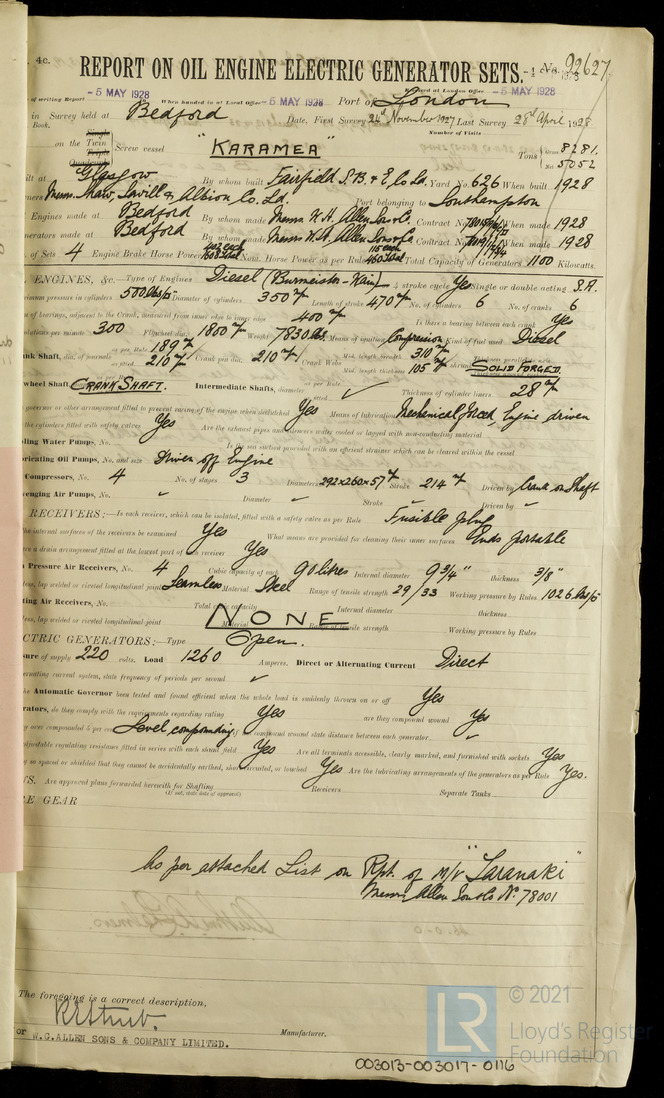 4c.
REPORT ON OIL ENGINE ELECTRIC GENERATOR SETS. No. 92627
-5 MAY 1928 -5 MAY 1928 -5 MAY 1928
of writing Report When handed in at Local Office Port of London
in Survey held at Bedford Date, First Survey 24th November 1927 Last Survey 28th April 1928
Book. Number of Visits
Single
on the Twin Screw vessel "KARAMEA" Tons Gross 8281
Triple
Quadruple Net 5052
ilt at Glasgow By whom built Fairfield S.B. & E. Co Ld. Yard No. 626 When built 1928
ners Messrs. Shaw, Savill & Albion Co. Ld. Port belonging to Southampton
Engines made at Bedford By whom made Messrs W. H. Allen Sons & Co. Contract No. When made 1928
nerators made at Bedford By whom made Messrs W. H. Allen Sons & Co. Contract No. When made 1928
of Sets 4 Engine Brake Horse Power Nom. Horse Power as per Rule Total Capacity of Generators 1100 Kilowatts.
ENGINES, &c.—Type of Engines Diesel (Burmeister-Wain) 4 stroke cycle Yes Single or double acting S.A.
ximum pressure in cylinders 500 lbs/□" Diameter of cylinders 350 m/m Length of stroke 470 m/m No. of cylinders 6 No. of cranks 6
of bearings, adjacent to the Crank, measured from inner edge to inner edge 400 m/m Is there a bearing between each crank Yes
olutions per minute 300 Flywheel dia. 1800 m/m Weight 7830 lbs. Means of ignition Compression Kind of fuel used Diesel
ank Shaft, dia. of journals as per Rule 189 m/m as fitted 210 m/m Crank pin dia. 210 m/m Crank Webs Mid. length breadth 310 m/m Mid. length thickness 105 m/m shrunk SOLID FORGED.
wheel Shaft, CRANK SHAFT. Intermediate Shafts, diameter as per Rule as fitted ✓ Thickness of cylinder liners 28 m/m
governor or other arrangement fitted to prevent racing of the engine when declutched Yes Means of lubrication Mechanical forced, Engine driven
the cylinders fitted with safety valves Yes Are the exhaust pipes and silencers water cooled or lagged with non-conducting material
ling Water Pumps, No. Is the sea suction provided with an efficient strainer which can be cleared within the vessel
bricating Oil Pumps, No. and size Driven off Engine
Compressors, No. 4 No. of stages 3 Diameters 292x260x57 m/m Stroke 214 m/m Driven by Crank on Shaft
venging Air Pumps, No. ✓ Diameter ✓ Stroke Driven by ✓
RECEIVERS:—Is each receiver, which can be isolated, fitted with a safety valve as per Rule Fusible plug
the internal surfaces of the receivers be examined Yes What means are provided for cleaning their inner surfaces Ends portable
re a drain arrangement fitted at the lowest part of each receiver Yes
h Pressure Air Receivers, No. 4 Cubic capacity of each 90 litres Internal diameter 9 3/4" thickness 3/8"
less, lap welded or riveted longitudinal joint Seamless Material Steel Range of tensile strength 29/33 Working pressure by Rules 1026 lbs/□"
ting Air Receivers, No. Total cubic capacity Internal diameter thickness
less, lap welded or riveted longitudinal joint NONE Material Range of tensile strength Working pressure by Rules
CTRIC GENERATORS:—Type Open.
sure of supply 220 volts. Load 1260 Amperes. Direct or Alternating Current Direct
ernating current system, state frequency of periods per second ✓
he Automatic Governor been tested and found efficient when the whole load is suddenly thrown on or off Yes
rators, do they comply with the requirements regarding rating Yes are they compound wound Yes
y over compounded 5 per cent. Level compounding, if compound wound state distance between each generator ✓
adjustable regulating resistance fitted in series with each shunt field Yes Are all terminals accessible, clearly marked, and furnished with sockets Yes
y so spaced or shielded that they cannot be accidentally earthed, short circuited, or touched Yes Are the lubricating arrangements of the generators as per Rule Yes.
S. Are approved plans forwarded herewith for Shafting Receivers Separate Tanks
(If not, state date of approval)
E GEAR
As per attached List on Rpt. of M/V "Taranaki"
Messrs Allen Sons & Co No. 78001
The foregoing is a correct description,
or W.G.ALLEN SONS & COMPANY LIMITED. Manufacturer.
LR © 2021
Lloyd's Register
Foundation
003013-003017-0116